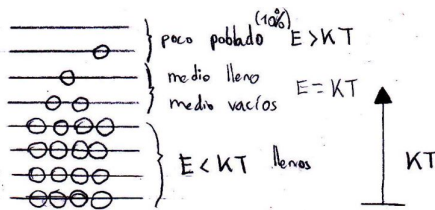 (10%)
poco poblado E > KT
medio lleno
medio vacíos
E = KT
E < KT llenos
KT